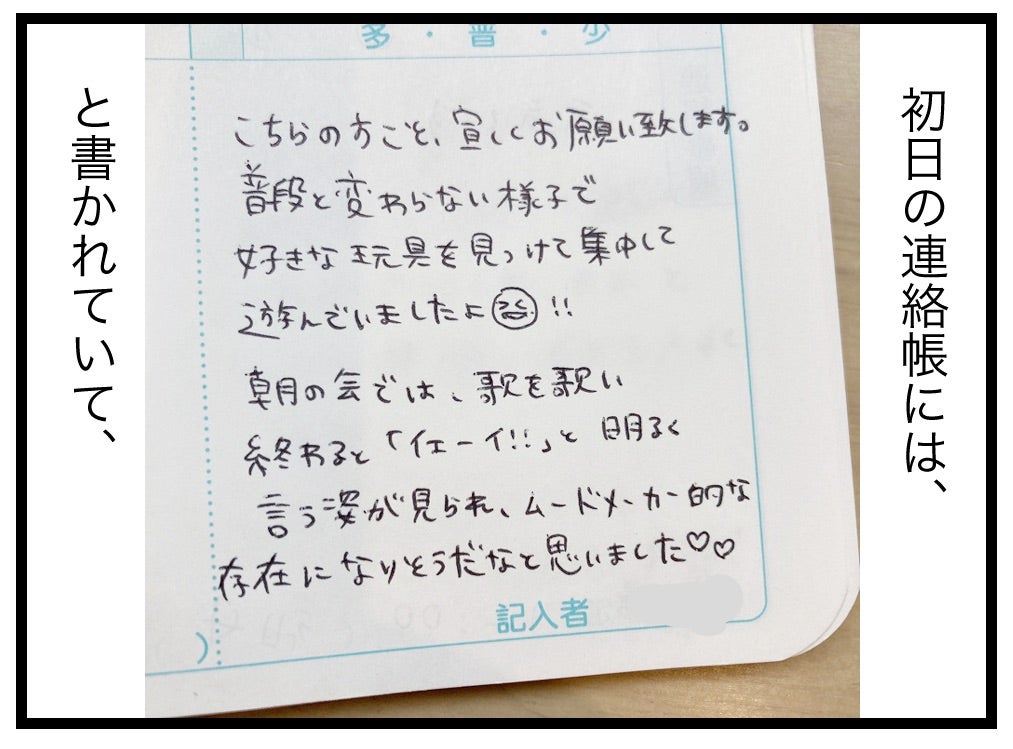 初日の連絡帳には、
多・普・少
こちらの方こそ、宜しくお願い致します。
普段と変わらない様子で
好きな玩具を見つけて集中して
遊んでいましたよ!!
朝の会では、歌を歌い
終わると「イェーイ!!」と明るく
言う姿が見られ、ムードメーカー的な
存在になりそうだなと思いました♡♡
記入者
)
と書かれていて、